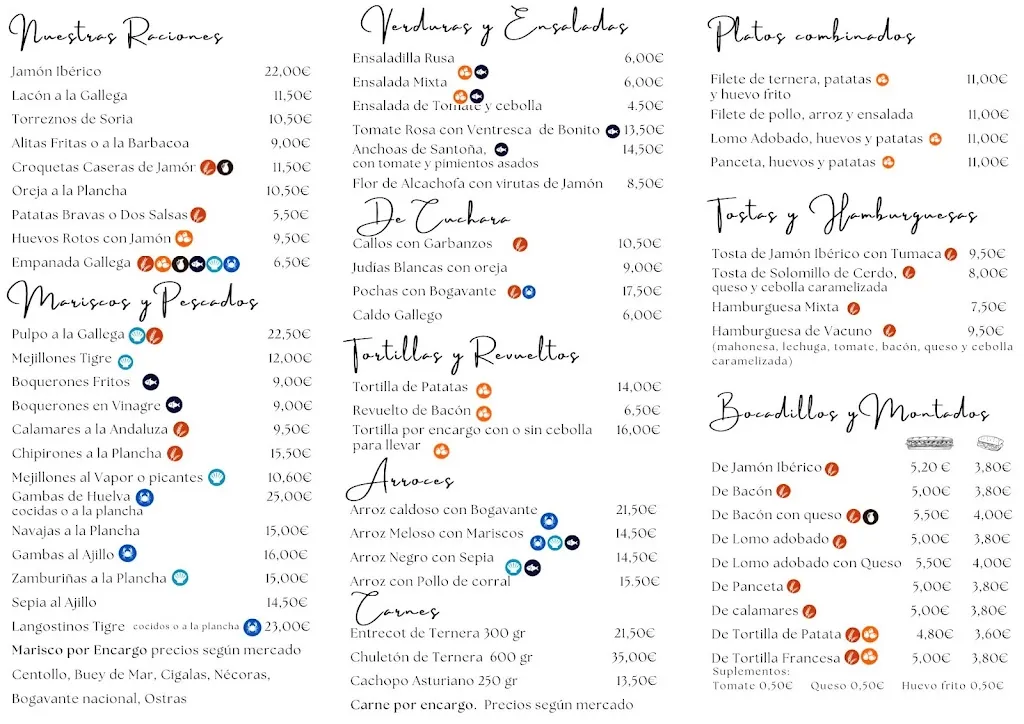 Nuestras Raciones
Jamón Ibérico 22,00€
Lacón a la Gallega 11,50€
Torreznos de Soria 10,50€
Alitas Fritas o a la Barbacoa 9,00€
Croquetas Caseras de Jamór 11,50€
Oreja a la Plancha 10,50€
Patatas Bravas o Dos Salsas 5,50€
Huevos Rotos con Jamón 9,50€
Empanada Gallega 6,50€
Mariscos y Pescados
Pulpo a la Gallega 22,50€
Mejillones Tigre 12,00€
Boquerones Fritos 9,00€
Boquerones en Vinagre 9,00€
Calamares a la Andaluza 9,50€
Chipirones a la Plancha 15,50€
Mejillones al Vapor o picantes 10,60€
Gambas de Huelva 25,00€
cocidas o a la plancha
Navajas a la Plancha 15,00€
Gambas al Ajillo 16,00€
Zamburiñas a la Plancha 15,00€
Sepia al Ajillo 14,50€
Langostinos Tigre cocidos o a la plancha 23,00€
Marisco por Encargo precios según mercado
Centollo, Buey de Mar, Cigalas, Nécoras,
Bogavante nacional, Ostras
Verduras y Ensaladas
Ensaladilla Rusa 6,00€
Ensalada Mixta 6,00€
Ensalada de Tomate y cebolla 4,50€
Tomate Rosa con Ventresca de Bonito 13,50€
Anchoas de Santoña, 14,50€
con tomate y pimientos asados
Flor de Alcachofa con virutas de Jamón 8,50€
De Cuchara
Callos con Garbanzos 10,50€
Judías Blancas con oreja 9,00€
Pochas con Bogavante 17,50€
Caldo Gallego 6,00€
Tortillas y Revueltos
Tortilla de Patatas 14,00€
Revuelto de Bacón 6,50€
Tortilla por encargo con o sin cebolla 16,00€
para llevar
Arroces
Arroz caldoso con Bogavante 21,50€
Arroz Meloso con Mariscos 14,50€
Arroz Negro con Sepia 14,50€
Arroz con Pollo de corral 15,50€
Carnes
Entrecot de Ternera 300 gr 21,50€
Chuletón de Ternera 600 gr 35,00€
Cachopo Asturiano 250 gr 13,50€
Carne por encargo. Precios según mercado
Platos combinados
Filete de ternera, patatas 11,00€
y huevo frito
Filete de pollo, arroz y ensalada 11,00€
Lomo Adobado, huevos y patatas 11,00€
Panceta, huevos y patatas 11,00€
Tostas y Hamburguesas
Tosta de Jamón Ibérico con Tumaca 9,50€
Tosta de Solomillo de Cerdo, 8,00€
queso y cebolla caramelizada
Hamburguesa Mixta 7,50€
Hamburguesa de Vacuno 9,50€
(mahonesa, lechuga, tomate, bacón, queso y cebolla
caramelizada)
Bocadillos y Montados
De Jamón Ibérico 5,20 € 3,80€
De Bacón 5,00€ 3,80€
De Bacón con queso 5,50€ 4,00€
De Lomo adobado 5,00€ 3,80€
De Lomo adobado con Queso 5,50€ 4,00€
De Panceta 5,00€ 3,80€
De calamares 5,00€ 3,80€
De Tortilla de Patata 4,80€ 3,60€
De Tortilla Francesa 5,00€ 3,80€
Suplementos:
Tomate 0,50€ Queso 0,50€ Huevo frito 0,50€